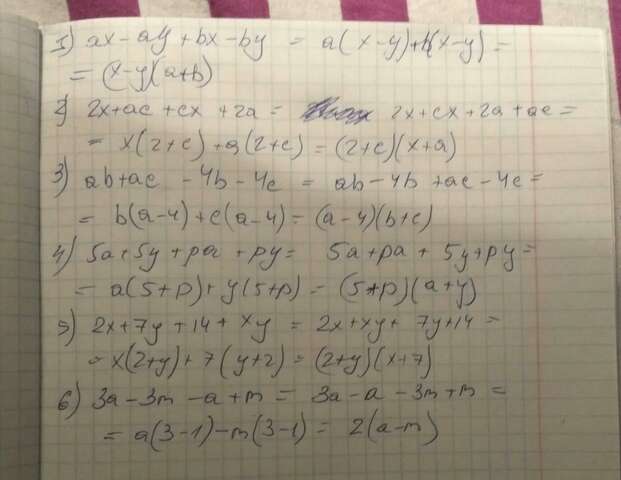 1) ax - ay + bx - by = a(x-y)+b(x-y) =
= (x-y)(a+b)
2) 2x+ac+cx+2a = 2x+cx+2a+ac =
= x(2+c)+a(2+c) = (2+c)(x+a)
3) ab+ac - 4b - 4c = ab - 4b + ac - 4c =
= b(a-4)+c(a-4) = (a-4)(b+c)
4) 5a+5y+pa+py = 5a+pa+5y+py =
= a(5+p)+y(5+p) = (5+p)(a+y)
5) 2x+7y+14+xy = 2x+xy+7y+14 =
= x(2+y)+7(y+2) = (2+y)(x+7)
6) 3a-3m-a+m = 3a-a-3m+m =
= a(3-1)-m(3-1) = 2(a-m)